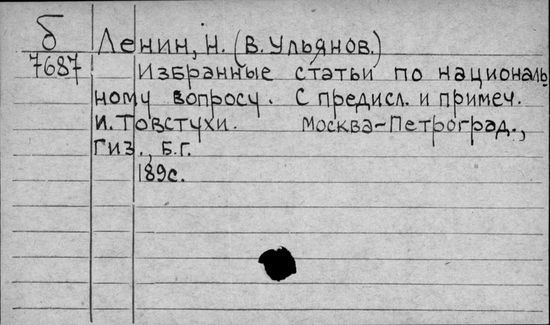 б Ленин, Н. (В. Ульянов.)
7687 Избранные статьи по националь
ному вопросу. С предисл. и примеч.
И. Товстухи. Москва-Петроград.,
Гиз., Б.Г.
189с.